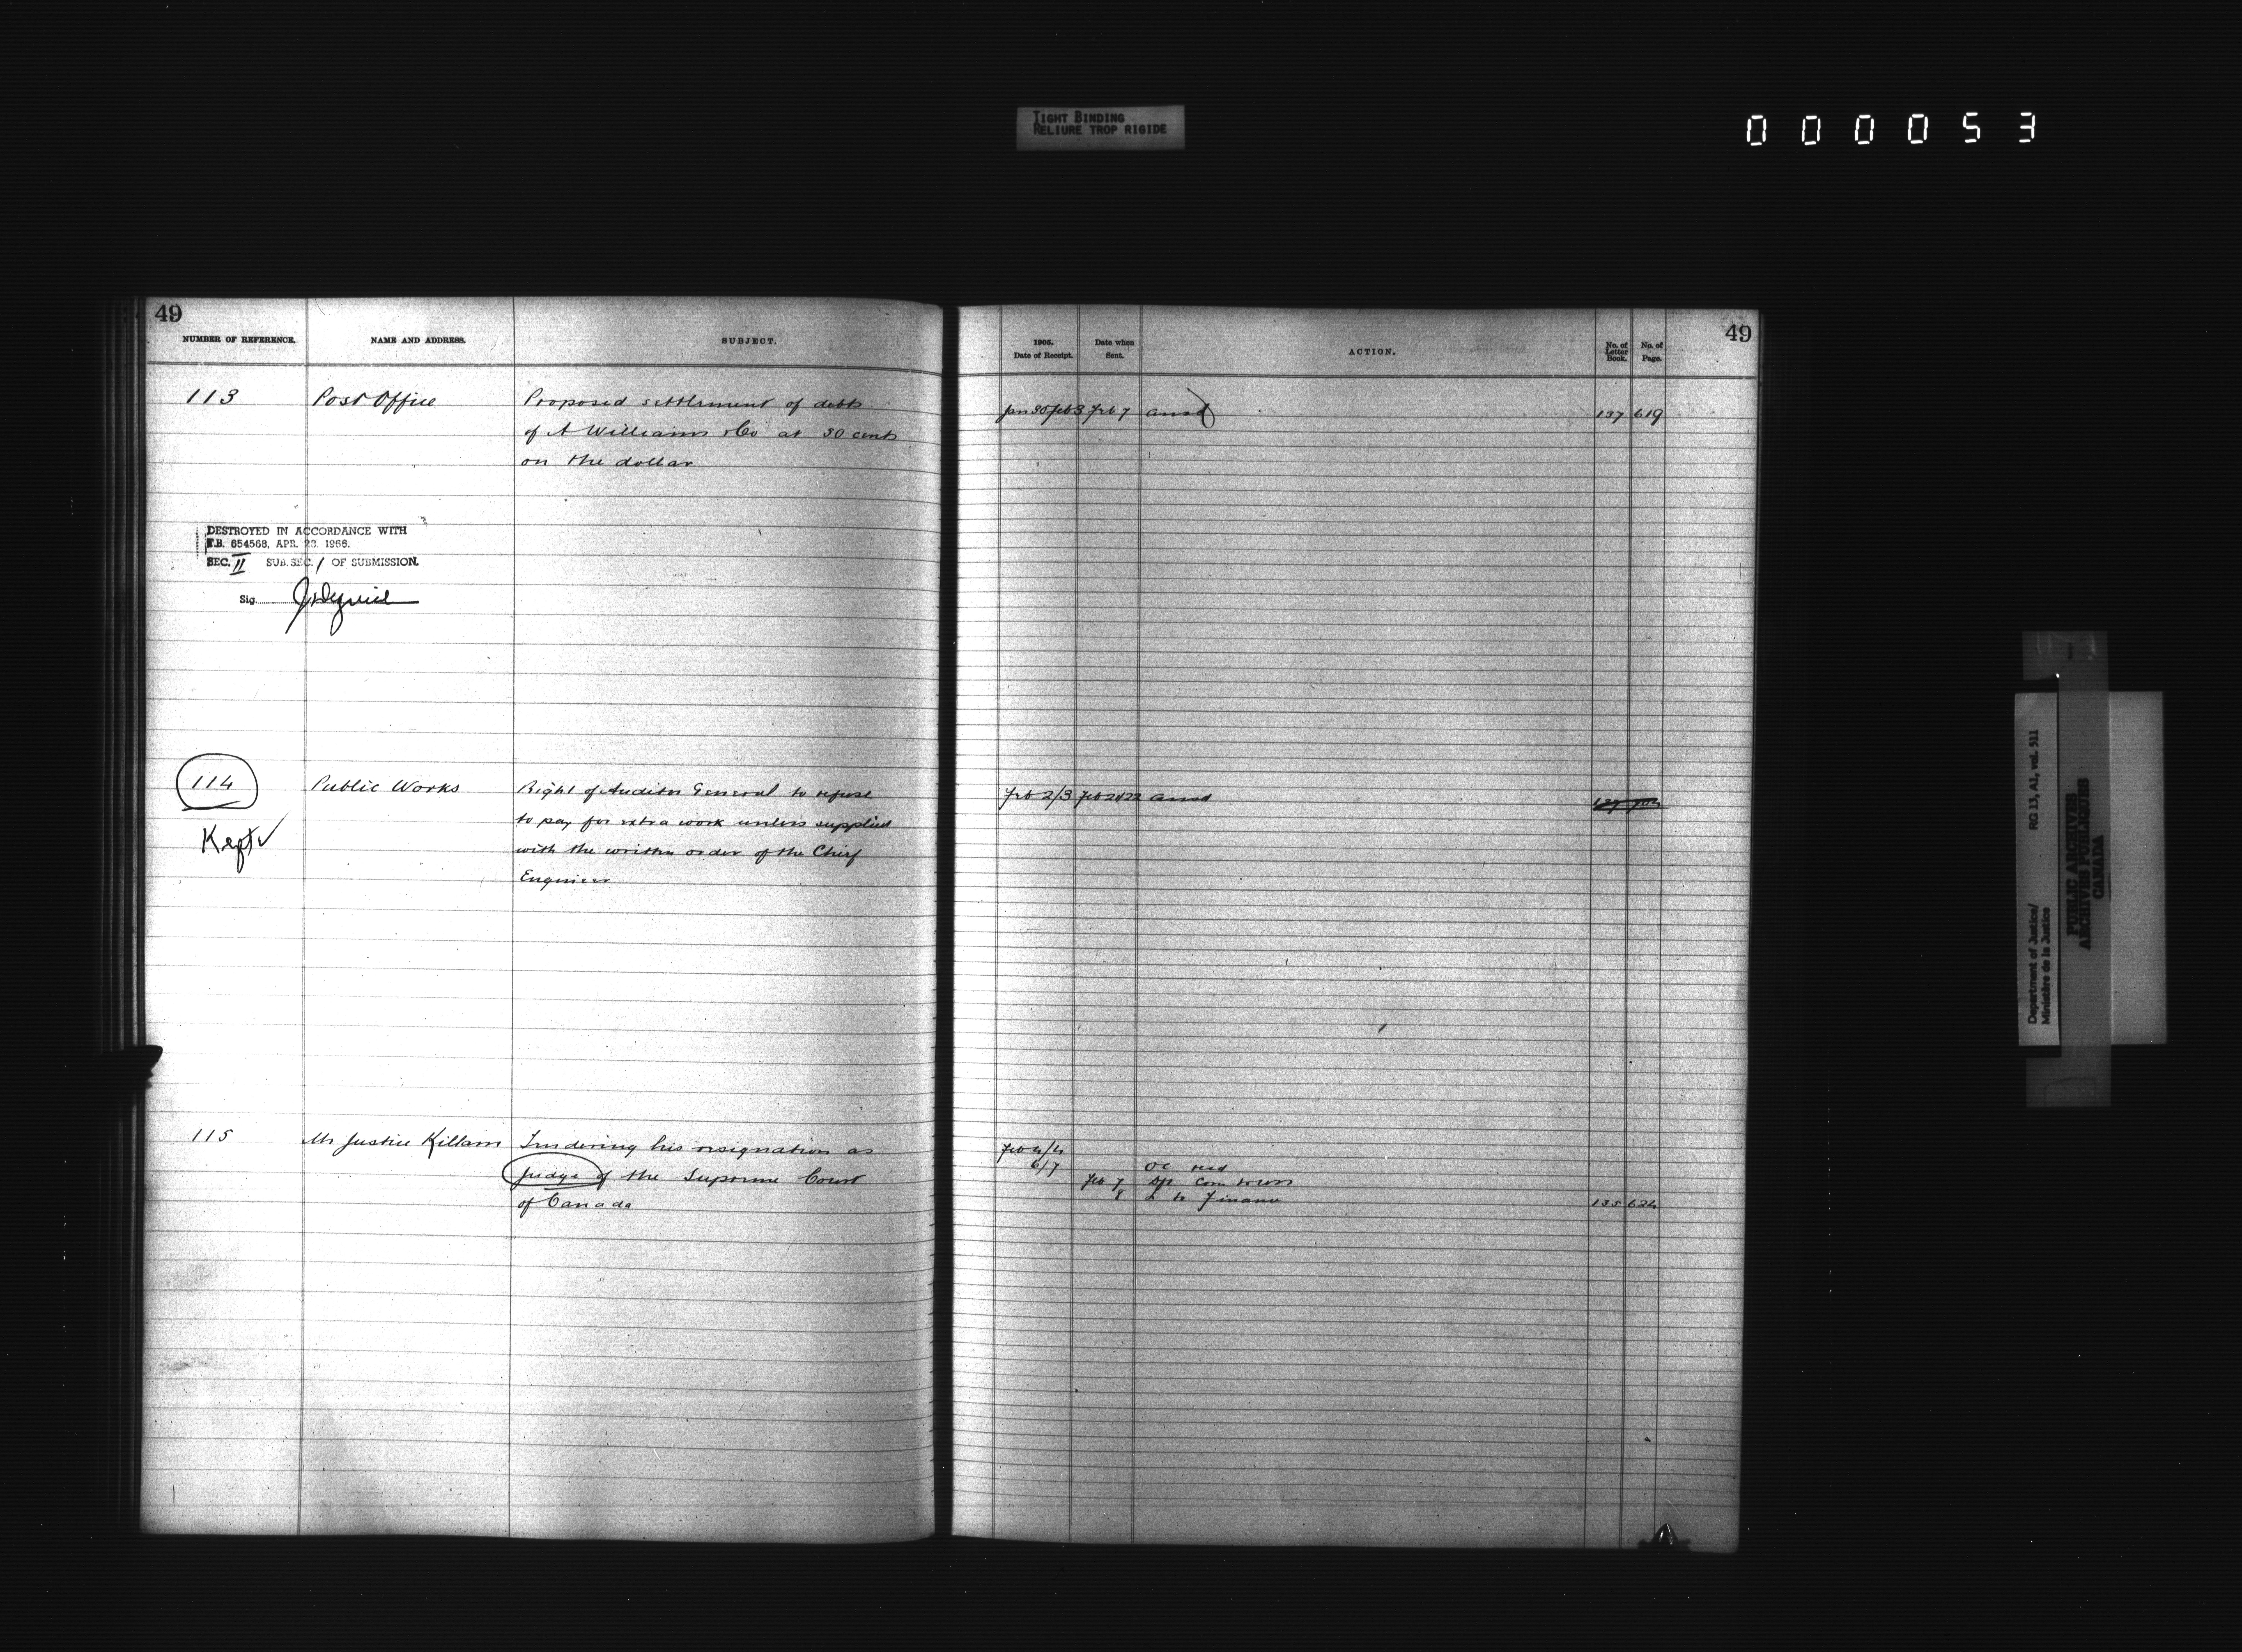 TIGHT BINDING
RELIURE TROP RIGIDE
0 0 0 0 5 3
49
NUMBER OF REFERENCE.
NAME AND ADDRESS.
SUBJECT.
113
Post Office
Proposed settlement of debts
of A Williams & Co at 30 cents
on the dollar
DESTROYED IN ACCORDANCE WITH
T.B. 654568, APR. 28. 1966.
SEC. II SUB. SEC. 1 OF SUBMISSION.
Sig.
114
Kept
Public Works
Right of Auditor General to refuse
to pay for extra work unless supplied
with the written order of the Chief
Engineer
115
Mr Justice Killam
Tendering his resignation as
Judge of the Supreme Court
of Canada
49
1905.
Date of Receipt.
Date when
Sent.
ACTION.
No. of
Letter
Book.
No. of
Page.
Jan 30 Feb 3 Feb 7 ansd 137 619
Feb 2/3 Feb 21/22 ansd
Feb 4/4
6/7 OC recd
Feb 7
8 L to Finance 135 624
Department of Justice/
Ministère de la Justice
RG 13, A1, vol. 511
PUBLIC ARCHIVES
ARCHIVES PUBLIQUES
CANADA